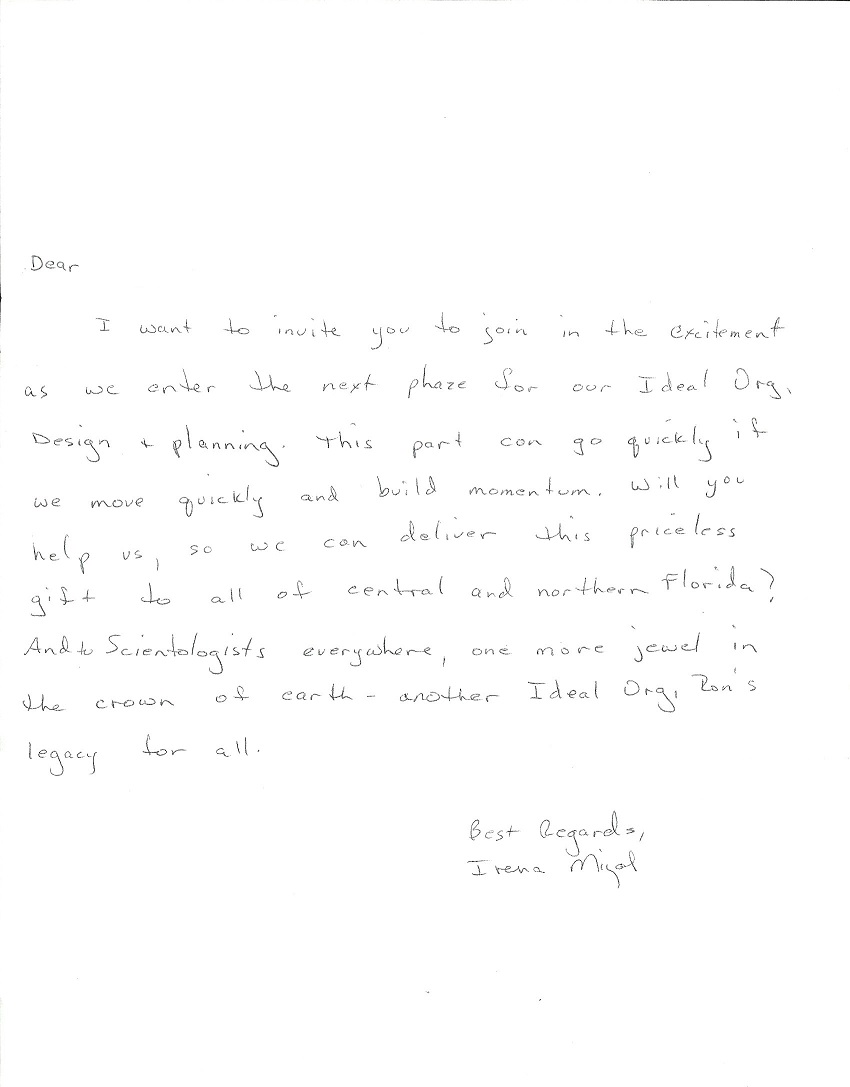 Dear
I want to invite you to join in the excitement
as we enter the next phaze for our Ideal Org,
Design + planning. This part can go quickly if
we move quickly and build momentum. Will you
help us, so we can deliver this priceless
gift to all of central and northern Florida?
And to Scientologists everywhere, one more jewel in
the crown of earth - another Ideal Org, Ron's
legacy for all.
Best Regards,
Irena